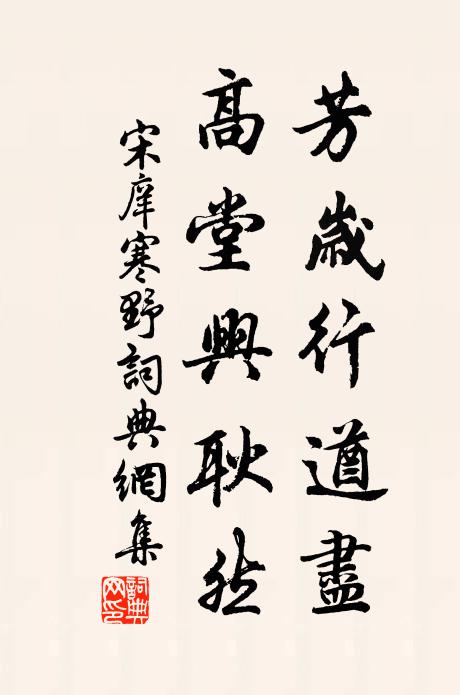 芳歲行遒盡
高堂興耿然
宋庠寒野詞典網集
詞典网印